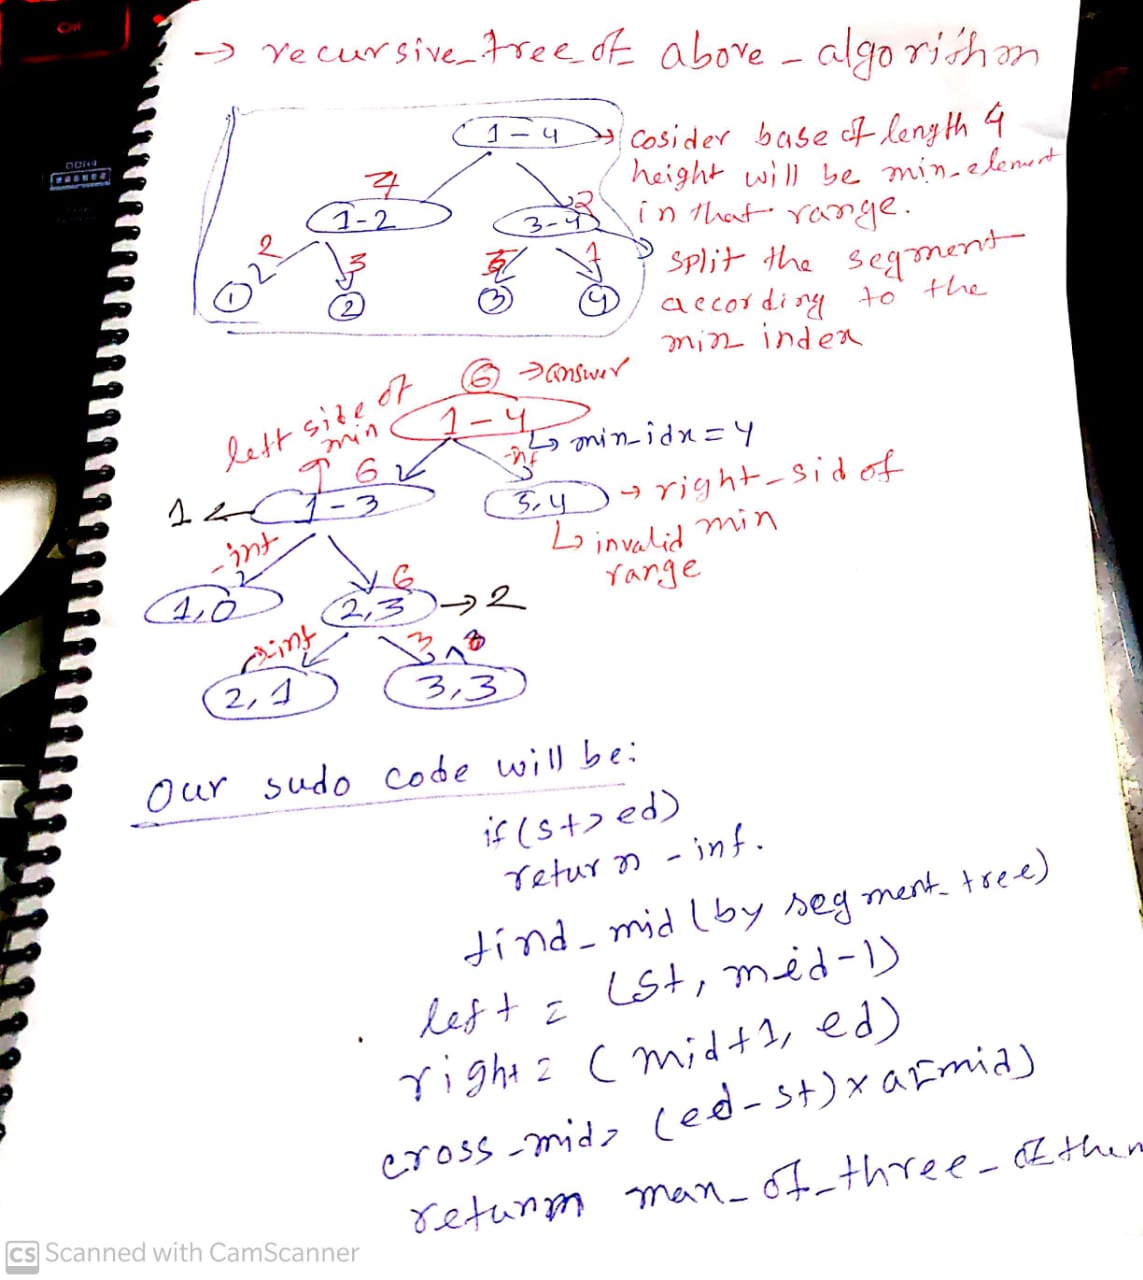 → recursive_tree_of above_algorithm
1-4 → cosider base of length 4
height will be min_element
in that range.
4 2
1-2 3-4
split the segment
according to the
min index
2 3 1
1 2 3 4
6 → answer
left side of
min
1-4
↳ min_idx = 4
6 -inf
1 ← 1-3 5,4 → right_sid of
min
↳ invalid
range
-inf 6
1,0 2,3 → 2
-inf 3
2,1 3,3
Our sudo code will be:
if(st>ed)
return -inf.
find_mid (by segment_tree)
left = (st, mid-1)
right = (mid+1, ed)
cross_mid = (ed-st) x a[mid]
return max_of_three_of them
CS Scanned with CamScanner